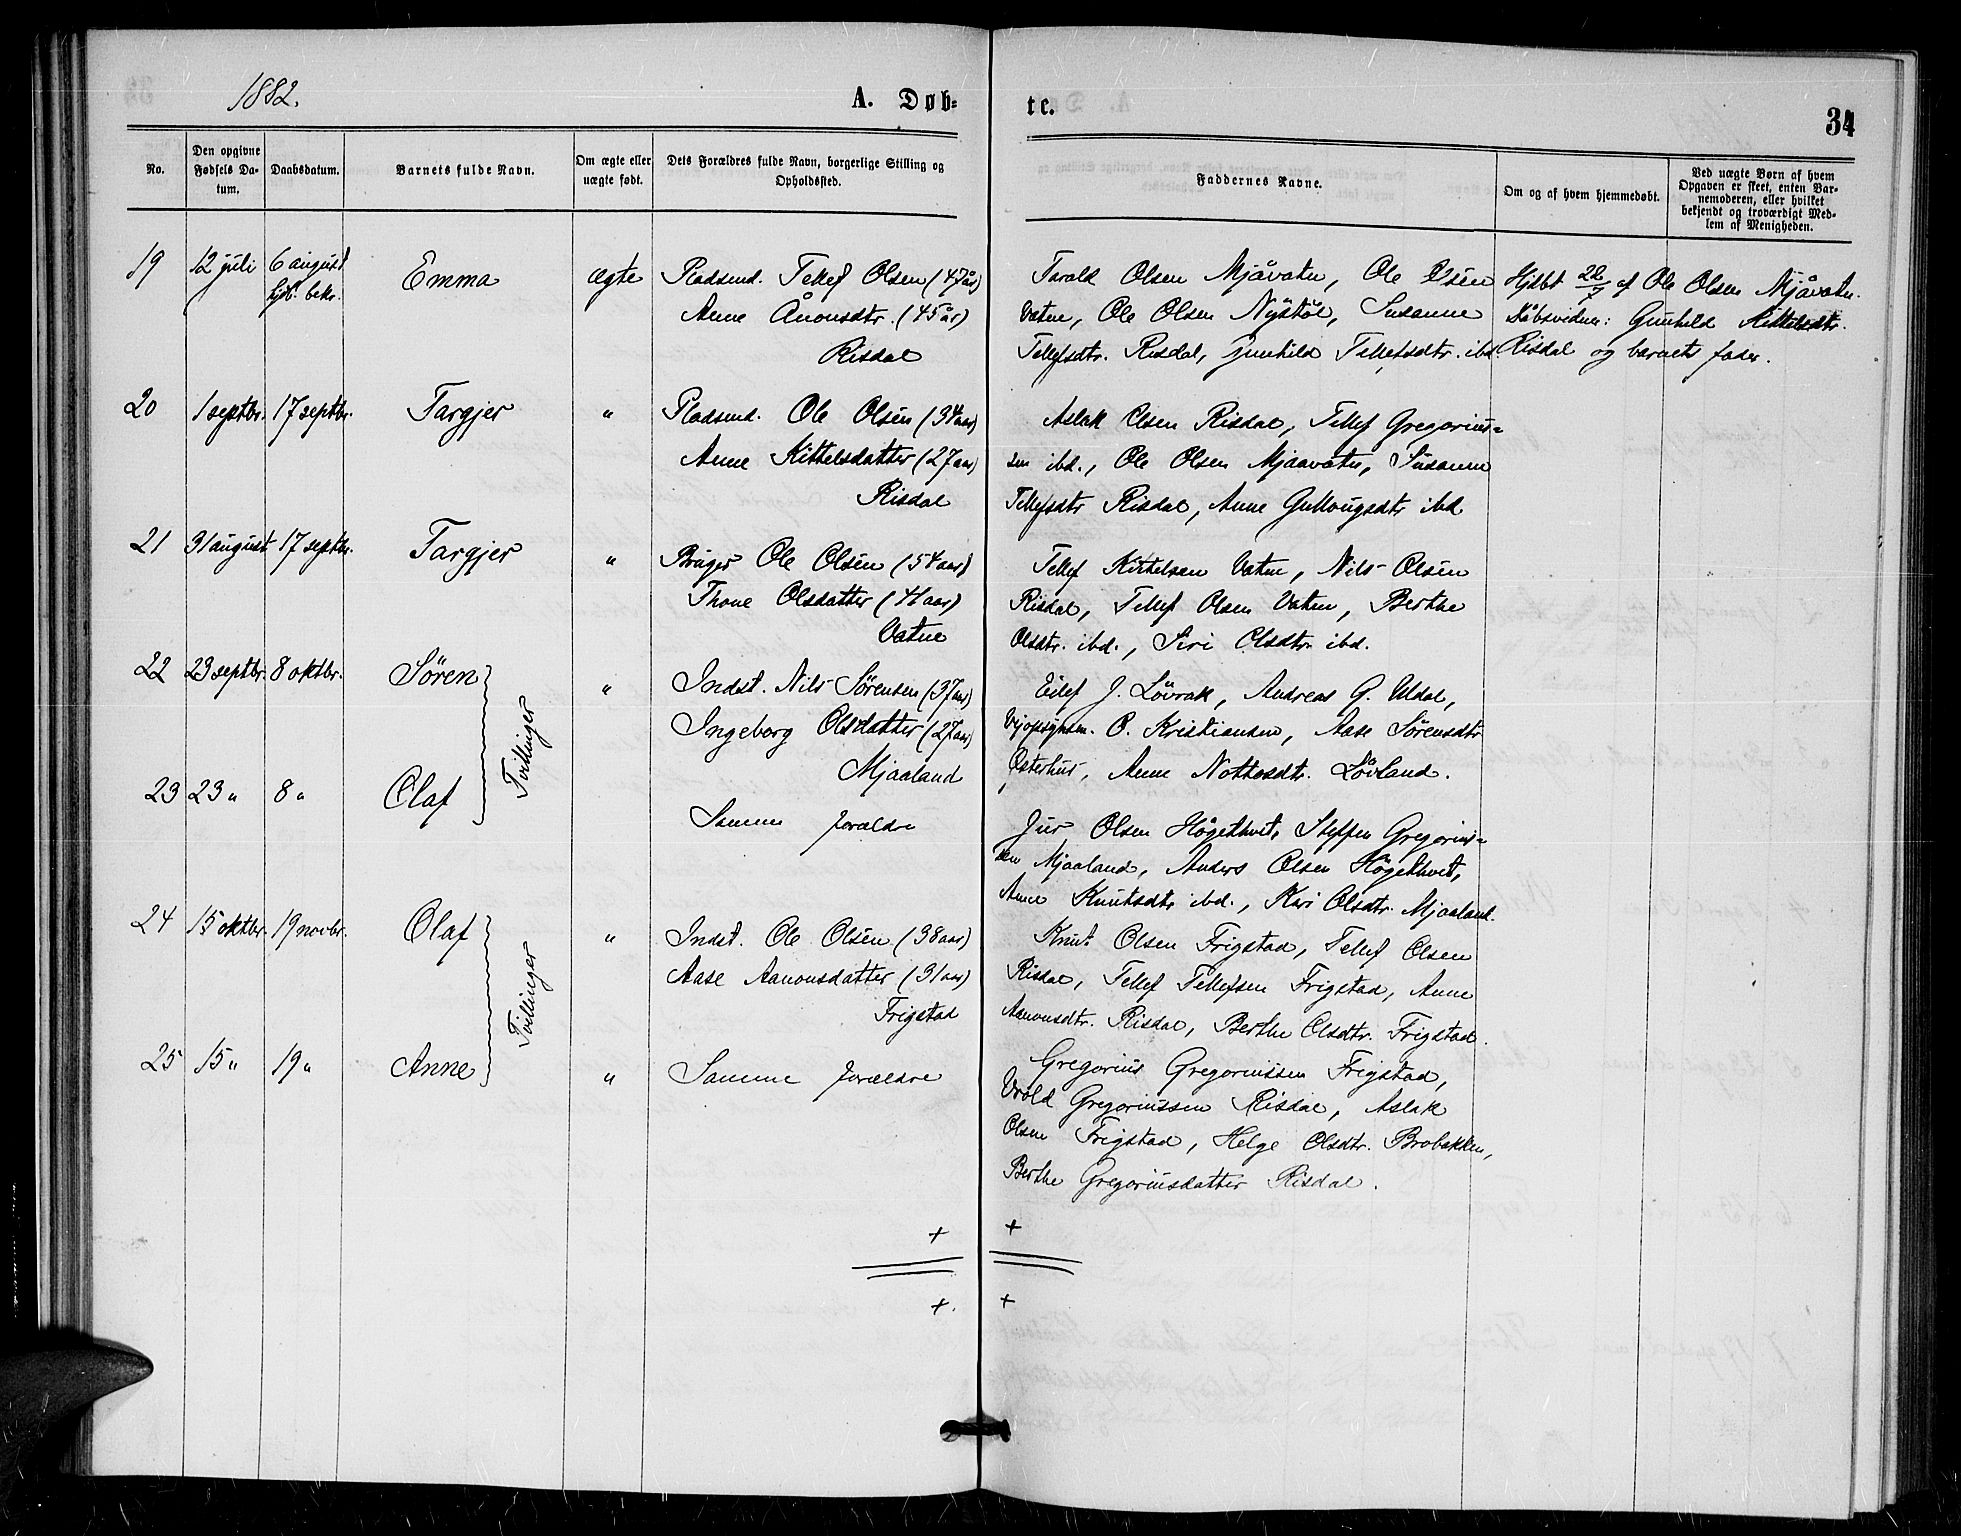 1882.
A. Døb=
No.
Den opgivne Fødsels Da-
tum.
Daabsdatum.
Barnets fulde Navn.
Om ægte eller
uægte født.
Dets Forældres fulde Navn, borgerlige Stilling og
Opholdssted.
19 12 juli 6 august Emma ægte Pladsmd. Tellef Olsen (47 år)
hjb. bekr. Anne Ånonsdtr. (45 år)
Risdal
20 1 septbr. 17 septbr. Targjer " Pladsmd. Ole Olsen (34 aar)
Anne Kittelsdatter (27 aar)
Risdal
21 31 august 17 septbr. Targjer " Bruger Ole Olsen (54 aar)
Thone Olsdatter (41 aar)
Vatne
22 23 septbr. 8 oktbr. Sören " Indst. Nils Sørensen (37 aar)
Tvillinger
Ingeborg Olsdatter (27 aar)
Mjaaland
23 23 " 8 " Olaf
Samme forældre
24 15 oktbr. 19 novbr. Olaf " Indst. Ole Olsen (38 aar)
Tvillinger
Aase Aanonsdatter (31 aar)
Frigstad
25 15 " 19 " Anne " Samme forældre
+
+.
te.
34
Faddernes Navne.
Om og af hvem hjemmedøbt.
Ved uægte Børn af hvem
Opgaven er skeet, enten Bar-
nemoderen, eller hvilket
bekjendt og troværdigt Med-
lem af Menigheden.
Tarald Olsen Mjåvatn, Ole Olsen Hjdbt 22/7 af Ole Olsen Mjåvatn.
Vatne, Ole Olsen Nystöl, Susanne Dåbsvidner: Gunhild Kittelsdtr.
Tellefsdtr. Risdal, Gunhild Tellefsdtr. ibd. Risdal og barnets fader.
Aslak Olsen Risdal, Tellef Gregorius=
sen ibd., Ole Olsen Mjaavatn, Susanne
Tellefsdtr Risdal, Anne Gullougsdtr ibd
Tellef Kittelsen Vatne, Nils Olsen
Risdal, Tellef Olsen Vatne, Berthe
Olsdtr. ibd., Siri Olsdtr. ibd.
Eilef J. Lövrak, Andreas G. Uldal,
O. Kristiansen, Aase Sörensdtr
Østerhus, Anne Nottosdtr. Lövland.
Jur Olsen Högethveit, Steffen Gregorius=
sen Mjaaland, Anders Olsen Högethveit,
Anne Knutsdtr ibd., Kari Olsdtr. Mjaaland.
Knut Olsen Frigstad, Tellef Olsen
Risdal, Tellef Tellefsen Frigstad, Anne
Aanonsdtr. Risdal, Berthe Olsdtr. Frigstad.
Gregorius Gregoriussen Frigstad,
Vrold Gregoriussen Risdal, Aslak
Olsen Frigstad, Helge Olsdtr. Brobakken,
Berthe Gregoriusdatter Risdal.
+
+